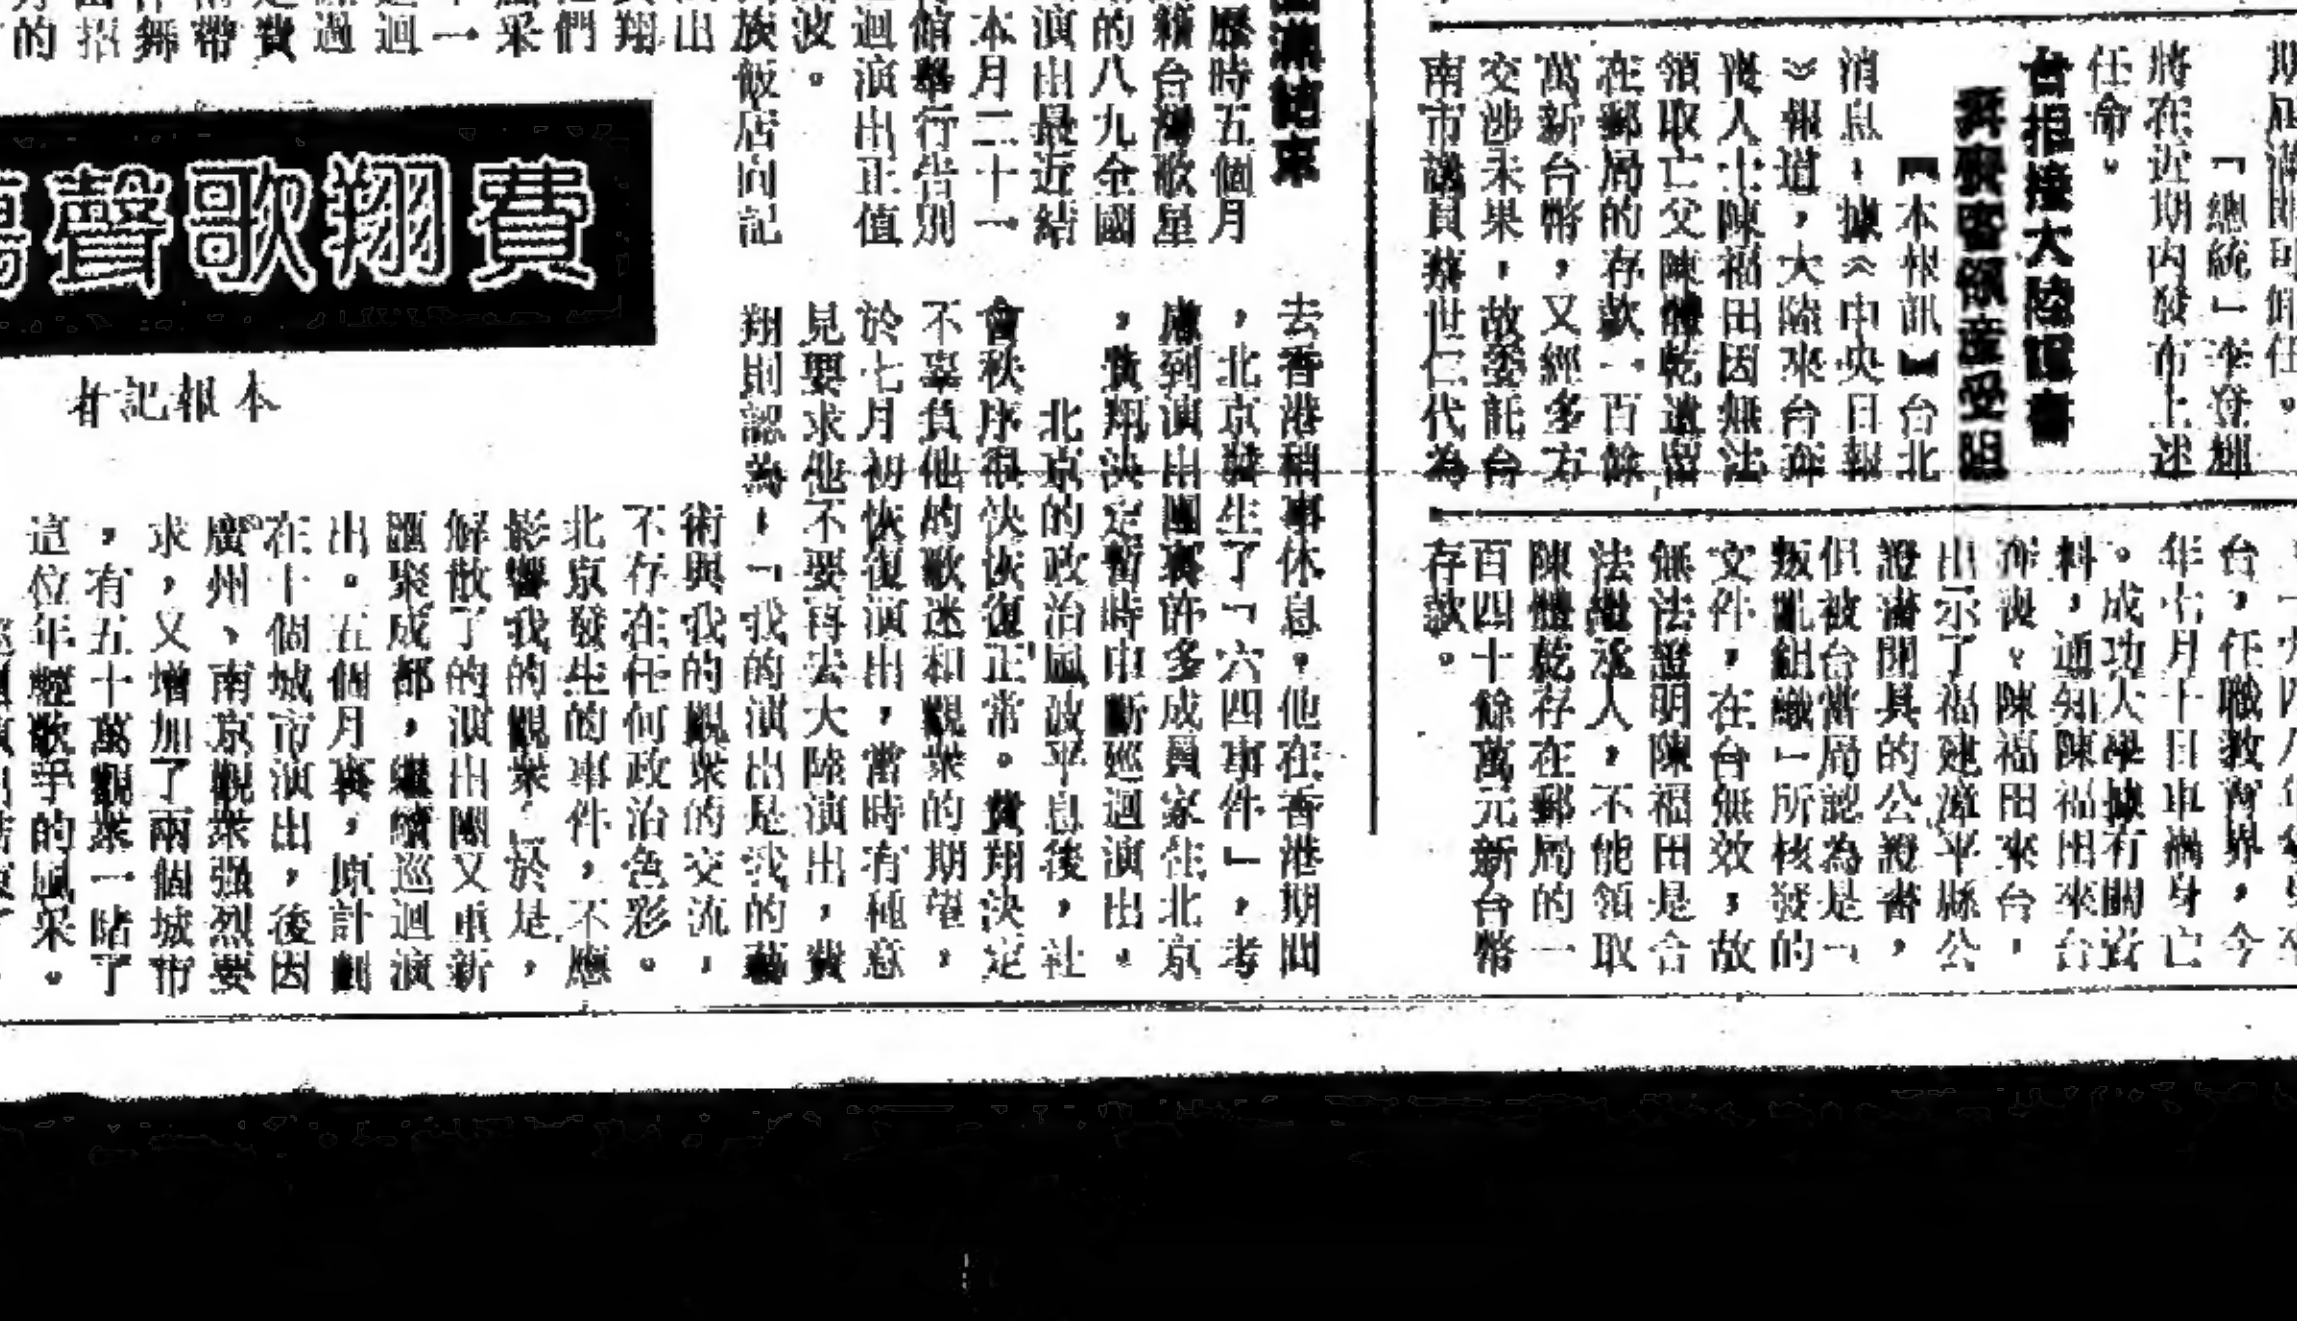 期屆滿即可卸任。
「總統」李登輝
將在近期內發布上述
任命。
台拒接大陸證書
奔喪客領產受阻
【本報訊】台北
消息，據《中央日報
》報道，大陸來台奔
喪人士陳福田因無法
領取亡父陳體乾遺留
在郵局的存款一百餘
萬新台幣，又經多方
交涉未果，故委託台
南市議員蔡世仁代為
台，任職教育界，今
年七月十日車禍身亡
。成功大學據有關資
料，通知陳福田來台
奔喪。陳福田來台，
出示了福建漳平縣公
證書開具的公證書，
但被台當局認為是「
叛亂組織」所核發的
文件，在台無效，故
無法證明陳福田是合
法繼承人，不能領取
陳體乾存在郵局的一
百四十餘萬元新台幣
存款。
滿結束
歷時五個月
籍台灣歌星
的八九全國
演出最近結
本月二十一
館舉行告別
迴演出正值
波。
族飯店向記
費翔歌聲
本報記者
去香港稍事休息。他在香港期間
，北京發生了「六四事件」，考
慮到演出團裏許多成員家住北京
，費翔決定暫時中斷巡迴演出。
北京的政治風波平息後，社
會秩序很快恢復正常。費翔決定
不辜負他的歌迷和觀衆的期望，
於七月初恢復演出，當時有種意
見要求他不要再去大陸演出，費
翔則認為，「我的演出是我的藝
術與我的觀衆的交流，
不存在任何政治色彩。
北京發生的事件，不應
影響我的觀衆」於是，
解散了的演出團又重新
匯聚成都，繼續巡迴演
出。五個月裏，原計劃
在十個城市演出，後因
廣州、南京觀衆强烈要
求，又增加了兩個城市
，有五十萬觀衆一睹了
這位年輕歌手的風采。